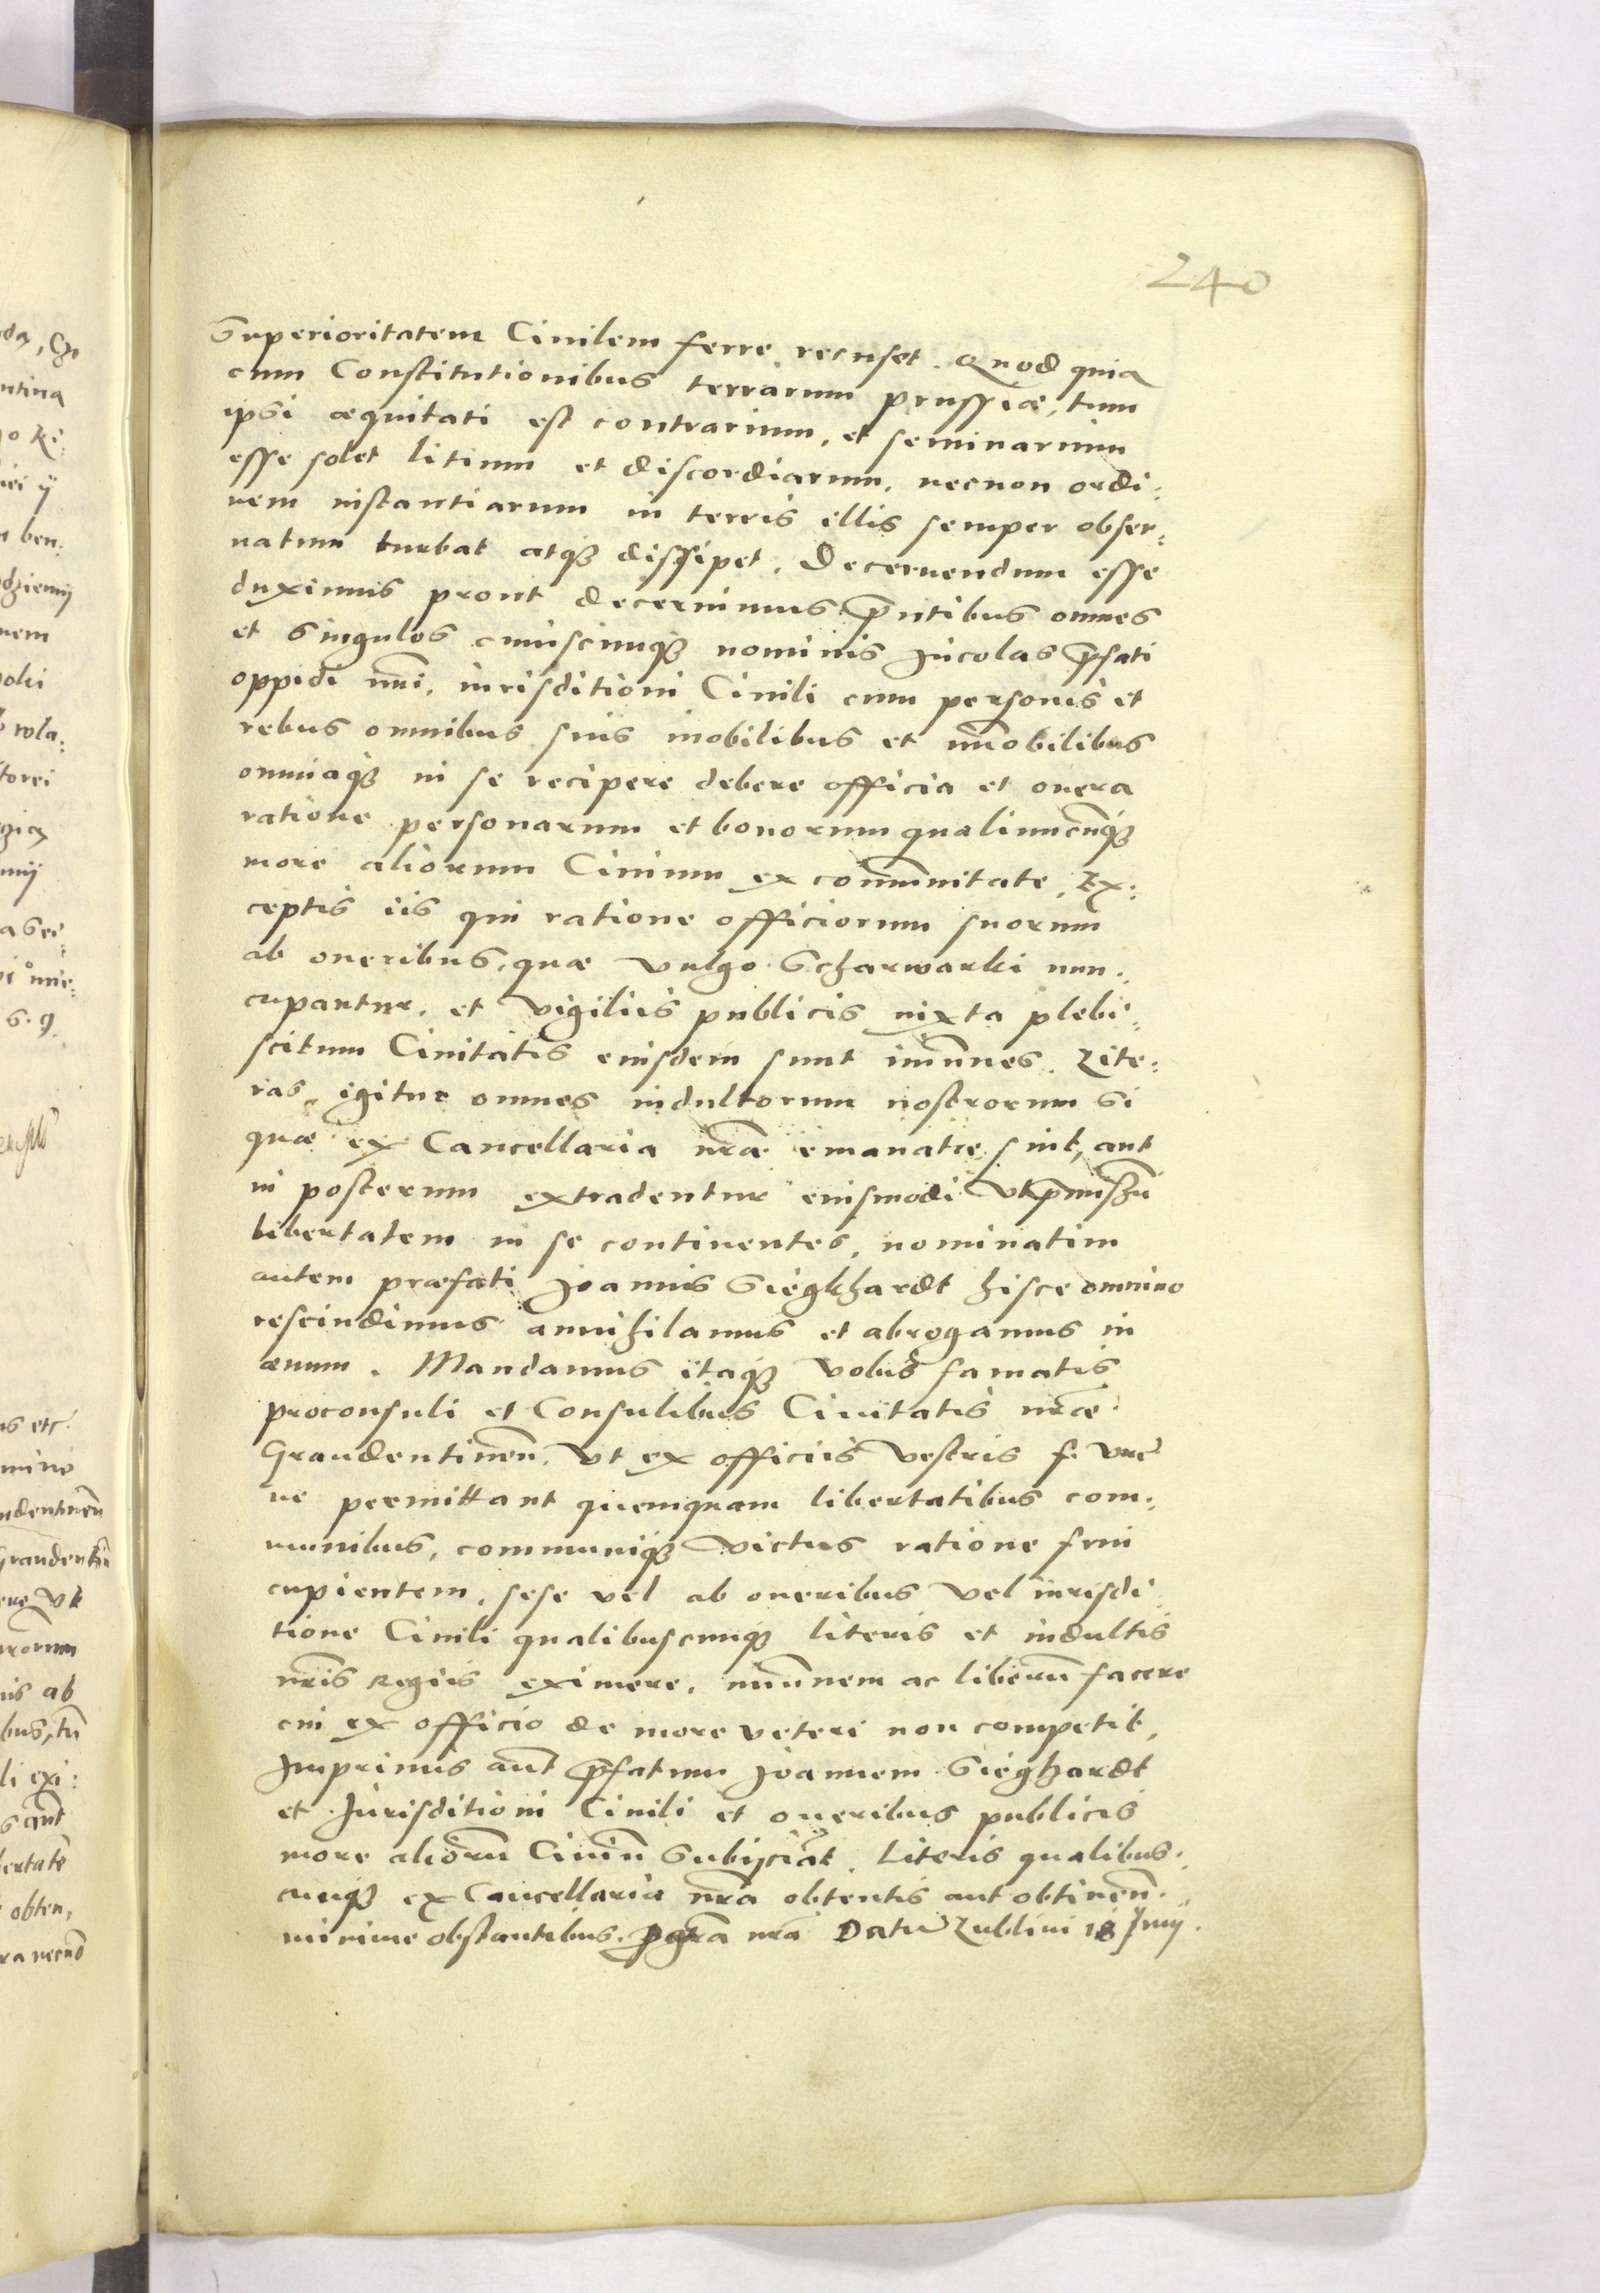 240
Superioritatem Ciuilem ferre recuset. Quod quia
cum Constitutionibus terrarum prussiæ, tum
ipsi æquitati est contrarium, et seminarium
esse solet litium et discordiarum, necnon ordi:
nem instantiarum in terris illis semper obser:
uatum turbat atq₃ dissipet. Decernendum esse
duximus prout decernimus p̄ntibus omnes
et singulos cuiuscunq₃ nominis Incolas p̄fati
oppidi nr̄i, iurisditioni Ciuili cum personis et
rebus omnibus suis mobilibus et im̄obilibus
omniaq₃ in se recipere debere officia et onera
ratione personarum et bonorum qualiumcūq₃
more aliorum Ciuium ex com̄unitate, Ex:
ceptis iis qui ratione officiorum suorum
ab oneribus, quæ vulgo Scharwarki nun:
cupantur, et vigiliis publicis iuxta plebi:
scitum Ciuitatis eiusdem sunt im̄unes. Lite:
ras igitur omnes indultorum nostrorum si
quæ ex Cancellaria nr̄a emanatæ sint, aut
in posterum extradentur eiusmodi vt
libertatem in se continentes, nominatim
autem præfati Joannis Siegkhardt hisce omnino
rescindimus annihilamus et abrogamus in
æuum. Mandamus itaq₃ vobis famatis
proconsuli et Consulibus Ciuitatis nr̄æ
Graudentinen̄. Vt ex officiis vestris f. vr̄e
ne permittant quemquam libertatibus com:
munibus, communiq₃ victus ratione frui
cupientem, sese vel ab oneribus vel iurisdi:
tione Ciuili qualibuscunq₃ literis et indultis
nr̄is Regiis eximere, im̄unem ac liberū facere
cui ex officio de more veteri non competit,
Imprimis aūt p̄fatum Joannem Sieghardt
et Jurisditioni Ciuili et oneribus publicis
more aliorū Ciuiū Subijciāt. Literis qualibus:
cunq₃ ex Cancellaria nr̄a obtentis aut obtinen̄.
minime obstantibus. p gr̄a nr̄a Datū Lublini 18 Junij.